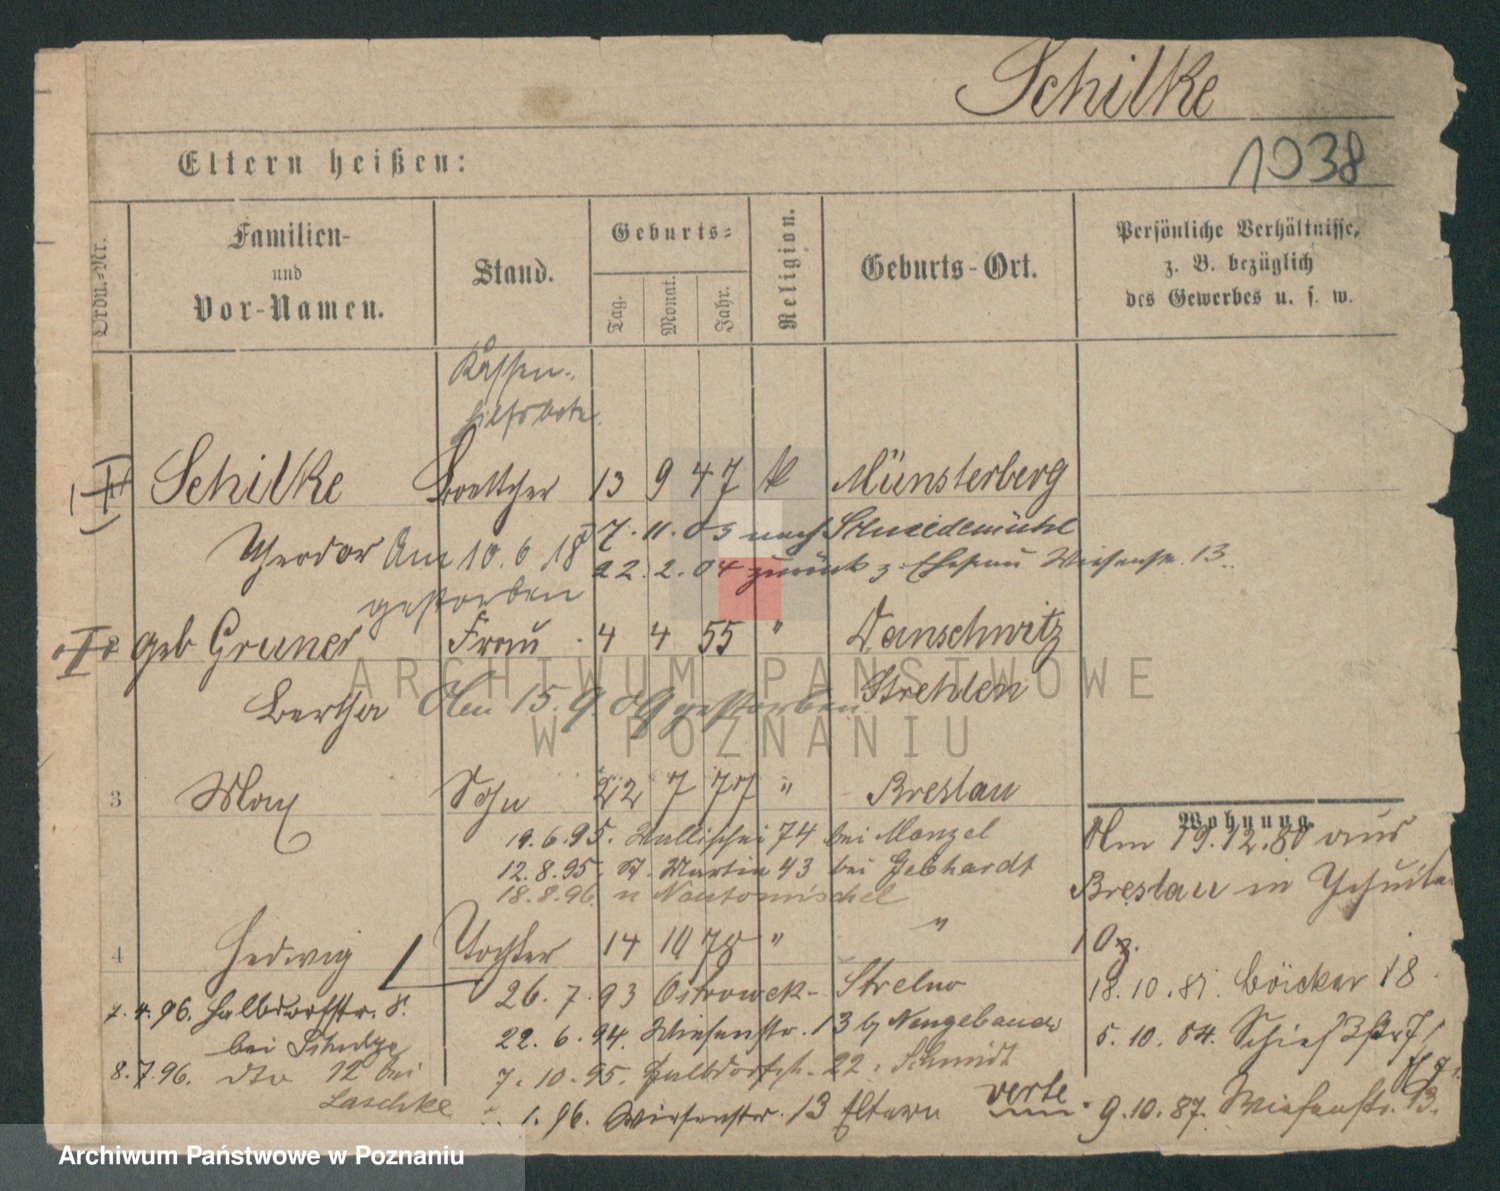 Schilke
1038
Eltern heißen:
Ordn.-Nr.
Familien-
und
Vor-Namen.
Stand.
Geburts-
Tag.
Monat.
Jahr.
Religion.
Geburts-Ort.
Persönliche Verhältnisse,
z. B. bezüglich
des Gewerbes u. s. w.
Kassen-
hilfsbote
Schilke Boettcher 13 9 47 k Münsterberg
7.11.03 nach Schneidemühl
Theodor Am 10.6.18
22.2.04 zurück z. Ehefrau Wiesenstr. 13.
gestorben
geb Gruner Frau 4 4 55 " Danschwitz
Strehlen
Bertha Am 15.9.09 gestorben.
3 Max Sohn 22 7 77 " Breslau
Wohnung.
19.6.95. Wallischei 74 bei Manzel
Am 19.12.80 aus
12.8.95. St. Martin 43 bei Gebhardt
Breslau in
18.8.96 n Neutomischel
10
4 Hedwig Tochter 14 10 78 " "
26.7.93 Ostrowek - Strelno
18.10.81. 18
7.4.96. Halbdorfstr. 8.
22.6.94. Wiesenstr. 13 b/ Neugebauer
5.10.84.
bei Schulze
8.7.96. dto 12 bei
7.10.95. Halbdorfstr. 22 Schmidt
Laschke
1.96. Wiesenstr. 13 Eltern verte
9.10.87. Wiesenstr. 13.
ARCHIWUM PAŃSTWOWE
W POZNANIU
Archiwum Państwowe w Poznaniu